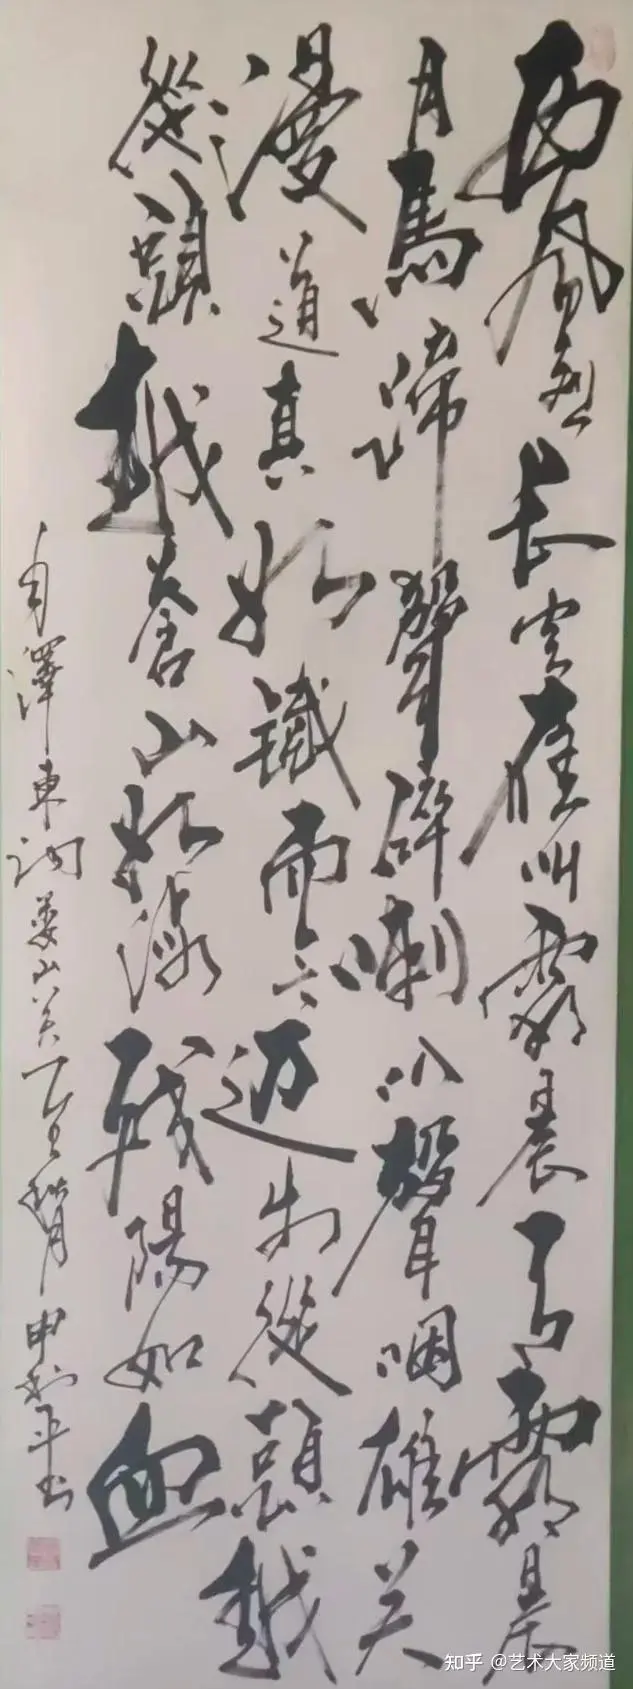 西風烈長空雁叫霜晨月霜晨
月馬蹄聲碎喇叭聲咽雄关
漫道真如鐵而今迈步從頭越
從頭越蒼山如海殘陽如血
毛澤東詞娄山关 申利平书
知乎 @艺术大家频道